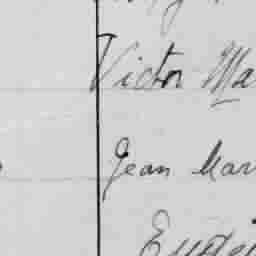 Victor Ma
Jean Mar
Eugé